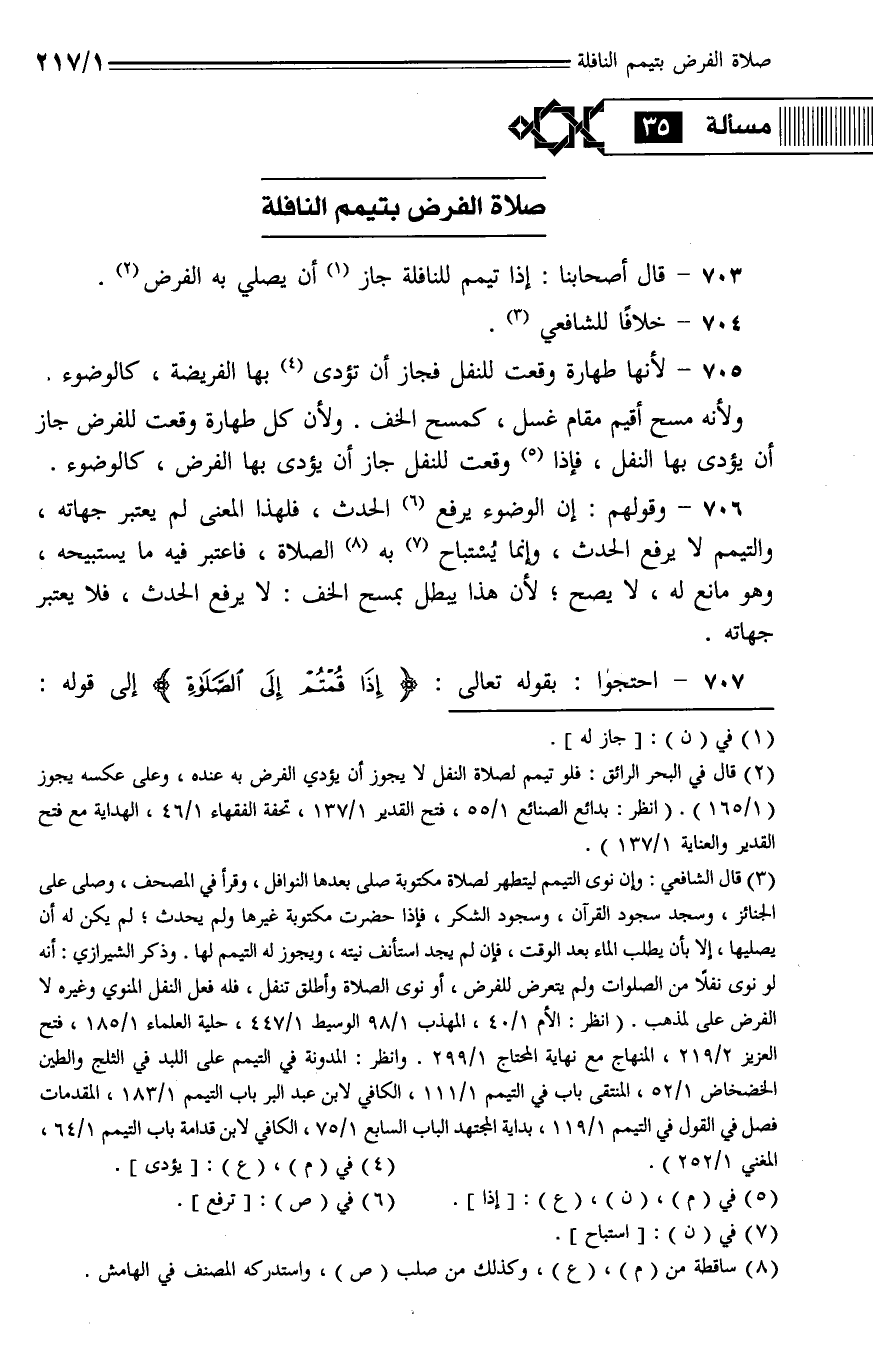 صلاة الفرض بتيمم النافلة ٢١٧/١
مسألة ٣٥
صلاة الفرض بتيمم النافلة
٧٠٣ - قال أصحابنا : إذا تيمم للنافلة جاز (١) أن يصلي به الفرض (٢) .
٧٠٤ - خلافًا للشافعي (٣) .
٧٠٥ - لأنها طهارة وقعت للنفل فجاز أن تؤدى (٤) بها الفريضة ، كالوضوء .
ولأنه مسح أقيم مقام غسل ، كمسح الخف . ولأن كل طهارة وقعت للفرض جاز
أن يؤدى بها النفل ، فإذا (٥) وقعت للنفل جاز أن يؤدى بها الفرض ، كالوضوء .
٧٠٦ - وقولهم : إن الوضوء يرفع (٦) الحدث ، فلهذا المعنى لم يعتبر جهاته ،
والتيمم لا يرفع الحدث ، وإنما يُسْتباح (٧) به (٨) الصلاة ، فاعتبر فيه ما يستبيحه ،
وهو مانع له ، لا يصح ؛ لأن هذا يبطل بمسح الخف : لا يرفع الحدث ، فلا يعتبر
جهاته .
٧٠٧ - احتجوا : بقوله تعالى : ﴿ إِذَا قُمْتُمْ إِلَى ٱلصَّلَوٰةِ ﴾ إلى قوله :
(١) في ( ن ) : [ جاز له ] .
(٢) قال في البحر الرائق : فلو تيمم لصلاة النفل لا يجوز أن يؤدي الفرض به عنده ، وعلى عكسه يجوز
( ١٦٥/١ ) . ( انظر : بدائع الصنائع ٥٥/١ ، فتح القدير ١٣٧/١ ، تحفة الفقهاء ٤٦/١ ، الهداية مع فتح
القدير والعناية ١٣٧/١ ) .
(٣) قال الشافعي : وإن نوى التيمم ليتطهر لصلاة مكتوبة صلى بعدها النوافل ، وقرأ في المصحف ، وصلى على
الجنائز ، وسجد سجود القرآن ، وسجود الشكر ، فإذا حضرت مكتوبة غيرها ولم يحدث ؛ لم يكن له أن
يصليها ، إلا بأن يطلب الماء بعد الوقت ، فإن لم يجد استأنف نيته ، ويجوز له التيمم لها . وذكر الشيرازي : أنه
لو نوى نفلًا من الصلوات ولم يتعرض للفرض ، أو نوى الصلاة وأطلق تنفل ، فله فعل النفل المنوي وغيره لا
الفرض على لمذهب . ( انظر : الأم ٤٠/١ ، المهذب ٩٨/١ الوسيط ٤٤٧/١ ، حلية العلماء ١٨٥/١ ، فتح
العزيز ٢١٩/٢ ، المنهاج مع نهاية المحتاج ٢٩٩/١ . وانظر : المدونة في التيمم على اللبد في الثلج والطين
الخضخاض ٥٢/١ ، المنتقى باب في التيمم ١١١/١ ، الكافي لابن عبد البر باب التيمم ١٨٣/١ ، المقدمات
فصل في القول في التيمم ١١٩/١ ، بداية المجتهد الباب السابع ٧٥/١ ، الكافي لابن قدامة باب التيمم ٦٤/١ ،
المغني ٢٥٢/١ ) . (٤) في ( م ) ، ( ع ) : [ يؤدى ] .
(٥) في ( م ) ، ( ن ) ، ( ع ) : [ إذا ] . (٦) في ( ص ) : [ ترفع ] .
(٧) في ( ن ) : [ استباح ] .
(٨) ساقطة من ( م ) ، ( ع ) ، وكذلك من صلب ( ص ) ، واستدركه المصنف في الهامش .